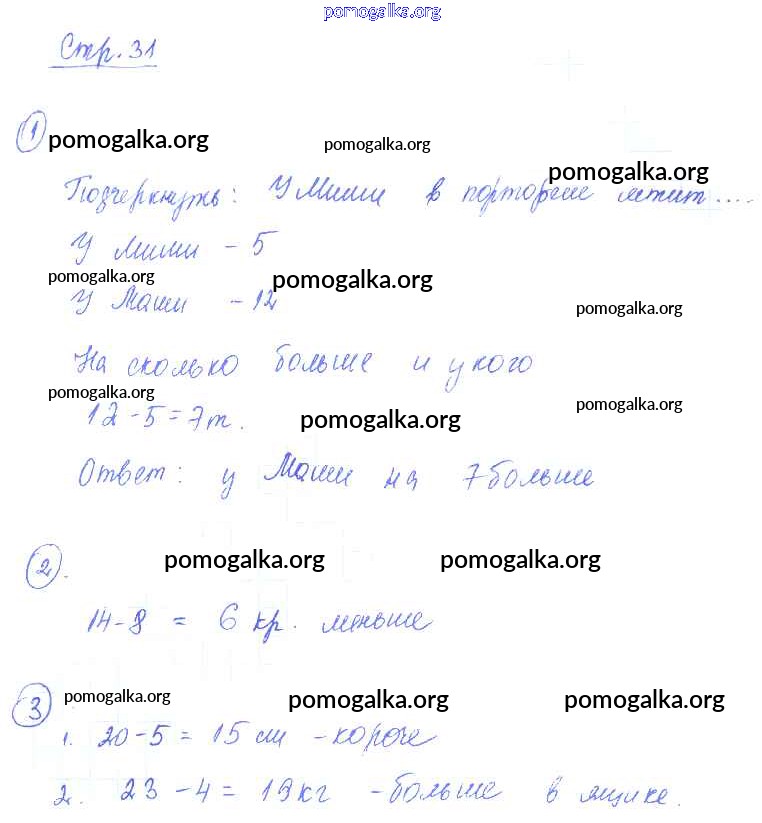 pomogalka.org
Стр. 31
1 pomogalka.org pomogalka.org pomogalka.org
Подчеркнуть: У Миши в лежит ....
У Миши - 5
pomogalka.org pomogalka.org pomogalka.org
У Маши - 12
На сколько больше и у кого
pomogalka.org pomogalka.org pomogalka.org
12 - 5 = 7 т.
Ответ: у Маши на 7 больше
2. pomogalka.org pomogalka.org
14 - 8 = 6 кр. меньше
3 pomogalka.org pomogalka.org pomogalka.org
1. 20 - 5 = 15 см - короче
2. 23 - 4 = 19 кг - больше в ящике.